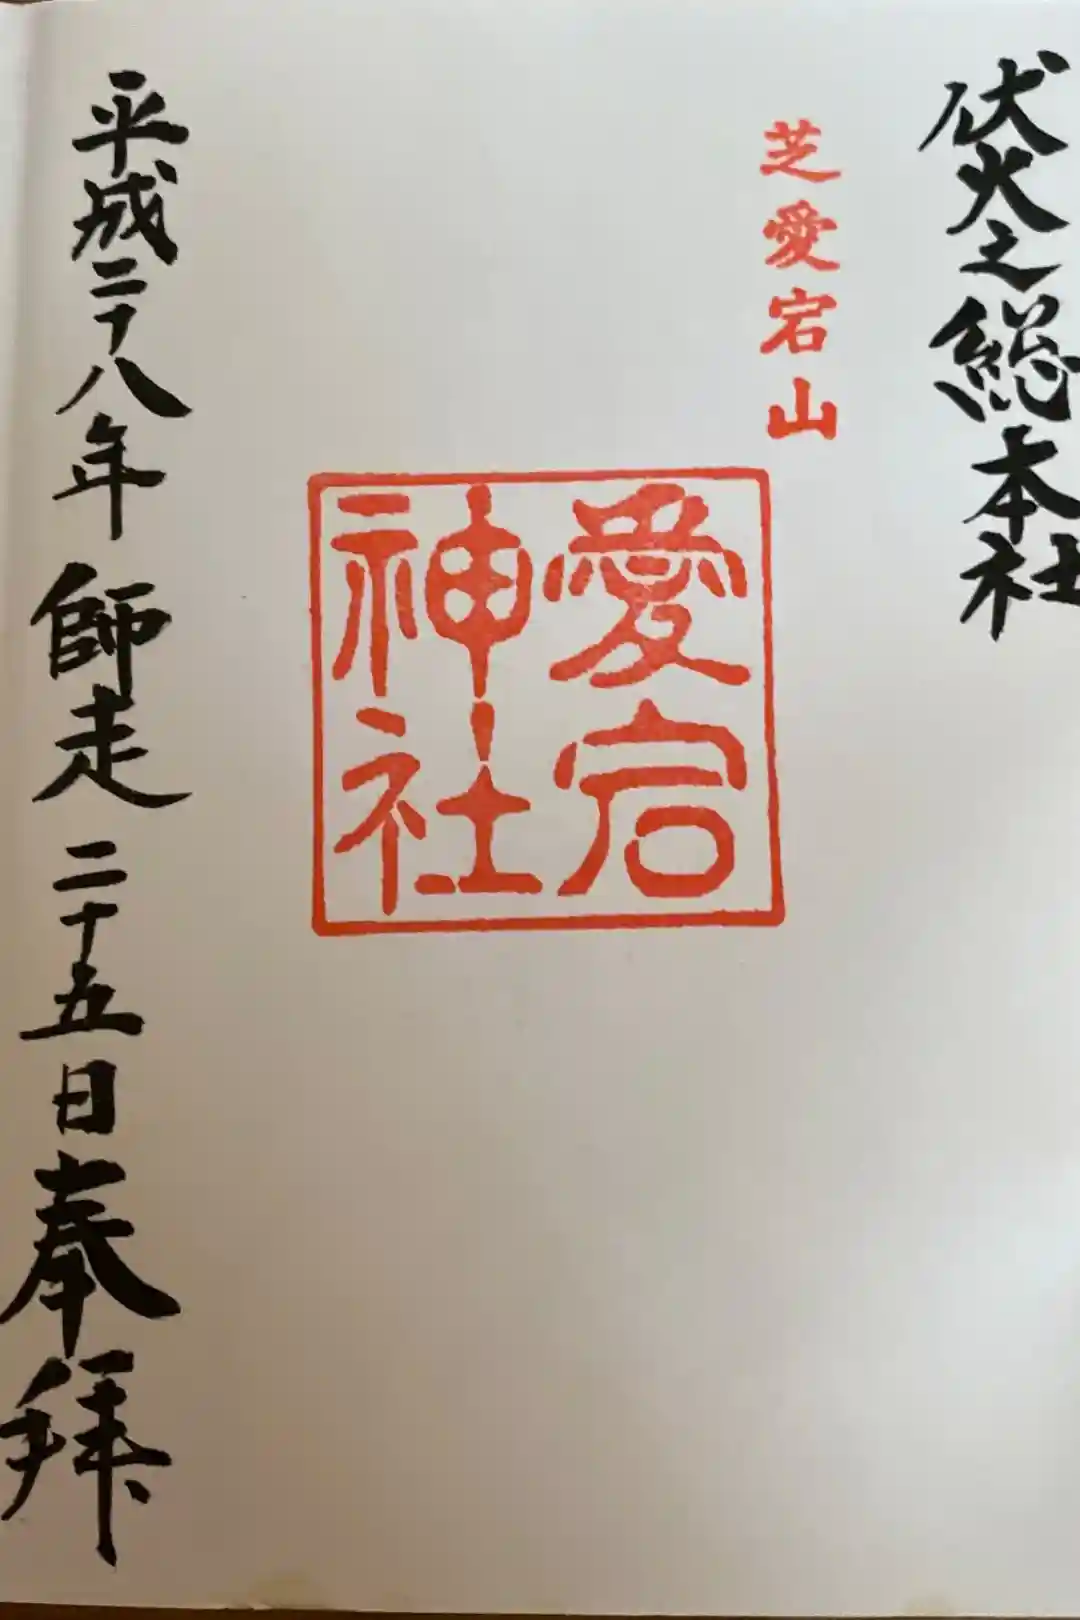 伏火之総本社
芝愛宕山
愛宕
神社
平成二十八年師走二十五日奉拝